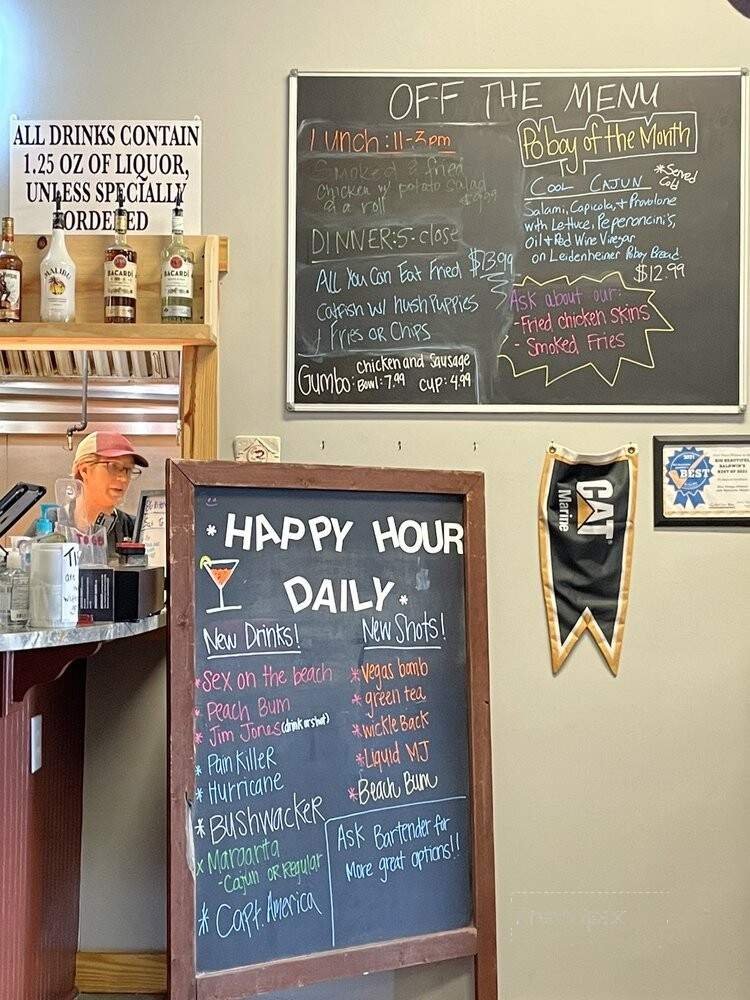 ALL DRINKS CONTAIN
1.25 OZ OF LIQUOR,
UNLESS SPECIALLY
ORDERED
MALIBU
BACARDI
BACARDI
OFF THE MENU
Lunch: 11-3pm
Smoked & fried
chicken w/ potato salad
& a roll $9.99
DINNER: 5-close
All You Can Eat Fried $13.99
Catfish w/ hushpuppies
/ Fries or Chips
Gumbo: chicken and Sausage
Bowl: 7.99 cup: 4.99
Po'boy of the Month
Cool Cajun *Served Cold
Salami, Capicola, + Provolone
with Lettuce, Peperoncini's,
Oil + Red Wine Vinegar
on Leidenheimer Poboy Bread
$12.99
Ask about our:
- Fried chicken skins
- Smoked Fries
*HAPPY HOUR
DAILY*
New Drinks!
*Sex on the beach
*Peach Bum
*Jim Jones (drink or shot)
*Pain Killer
*Hurricane
*BUSHWACKER
*Margarita
-Cajun or Regular
*Capt. America
New Shots!
*Vegas bomb
*green tea
*wickle Back
*Liquid MJ
*Beach Bum
Ask Bartender for
More great options!!
CAT
Marine
2021
BEST